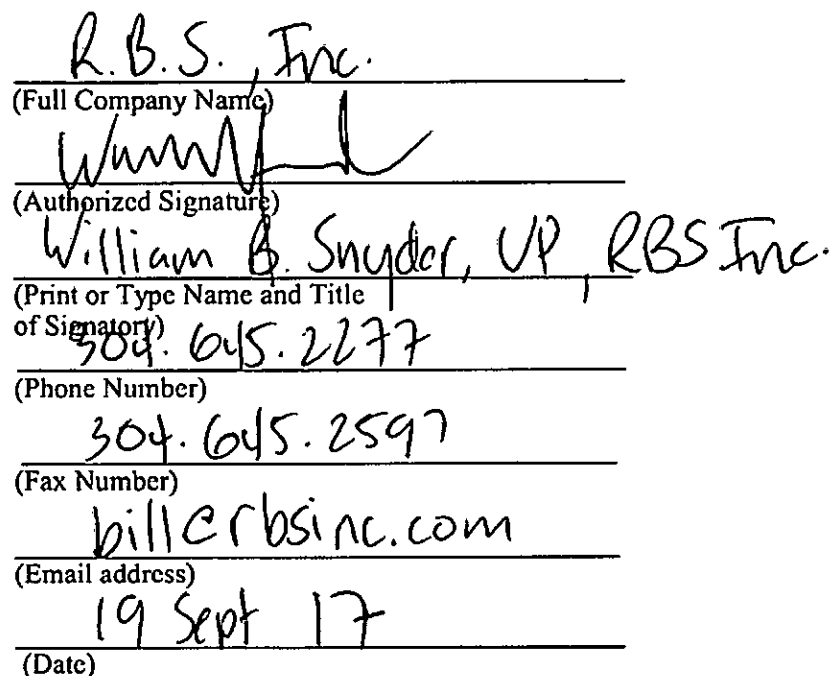 R.B.S., Inc.
(Full Company Name)
(Authorized Signature)
William B. Snyder, VP, RBS Inc.
(Print or Type Name and Title
of Signatory)
304.645.2277
(Phone Number)
304.645.2597
(Fax Number)
bill@rbsinc.com
(Email address)
19 Sept 17
(Date)